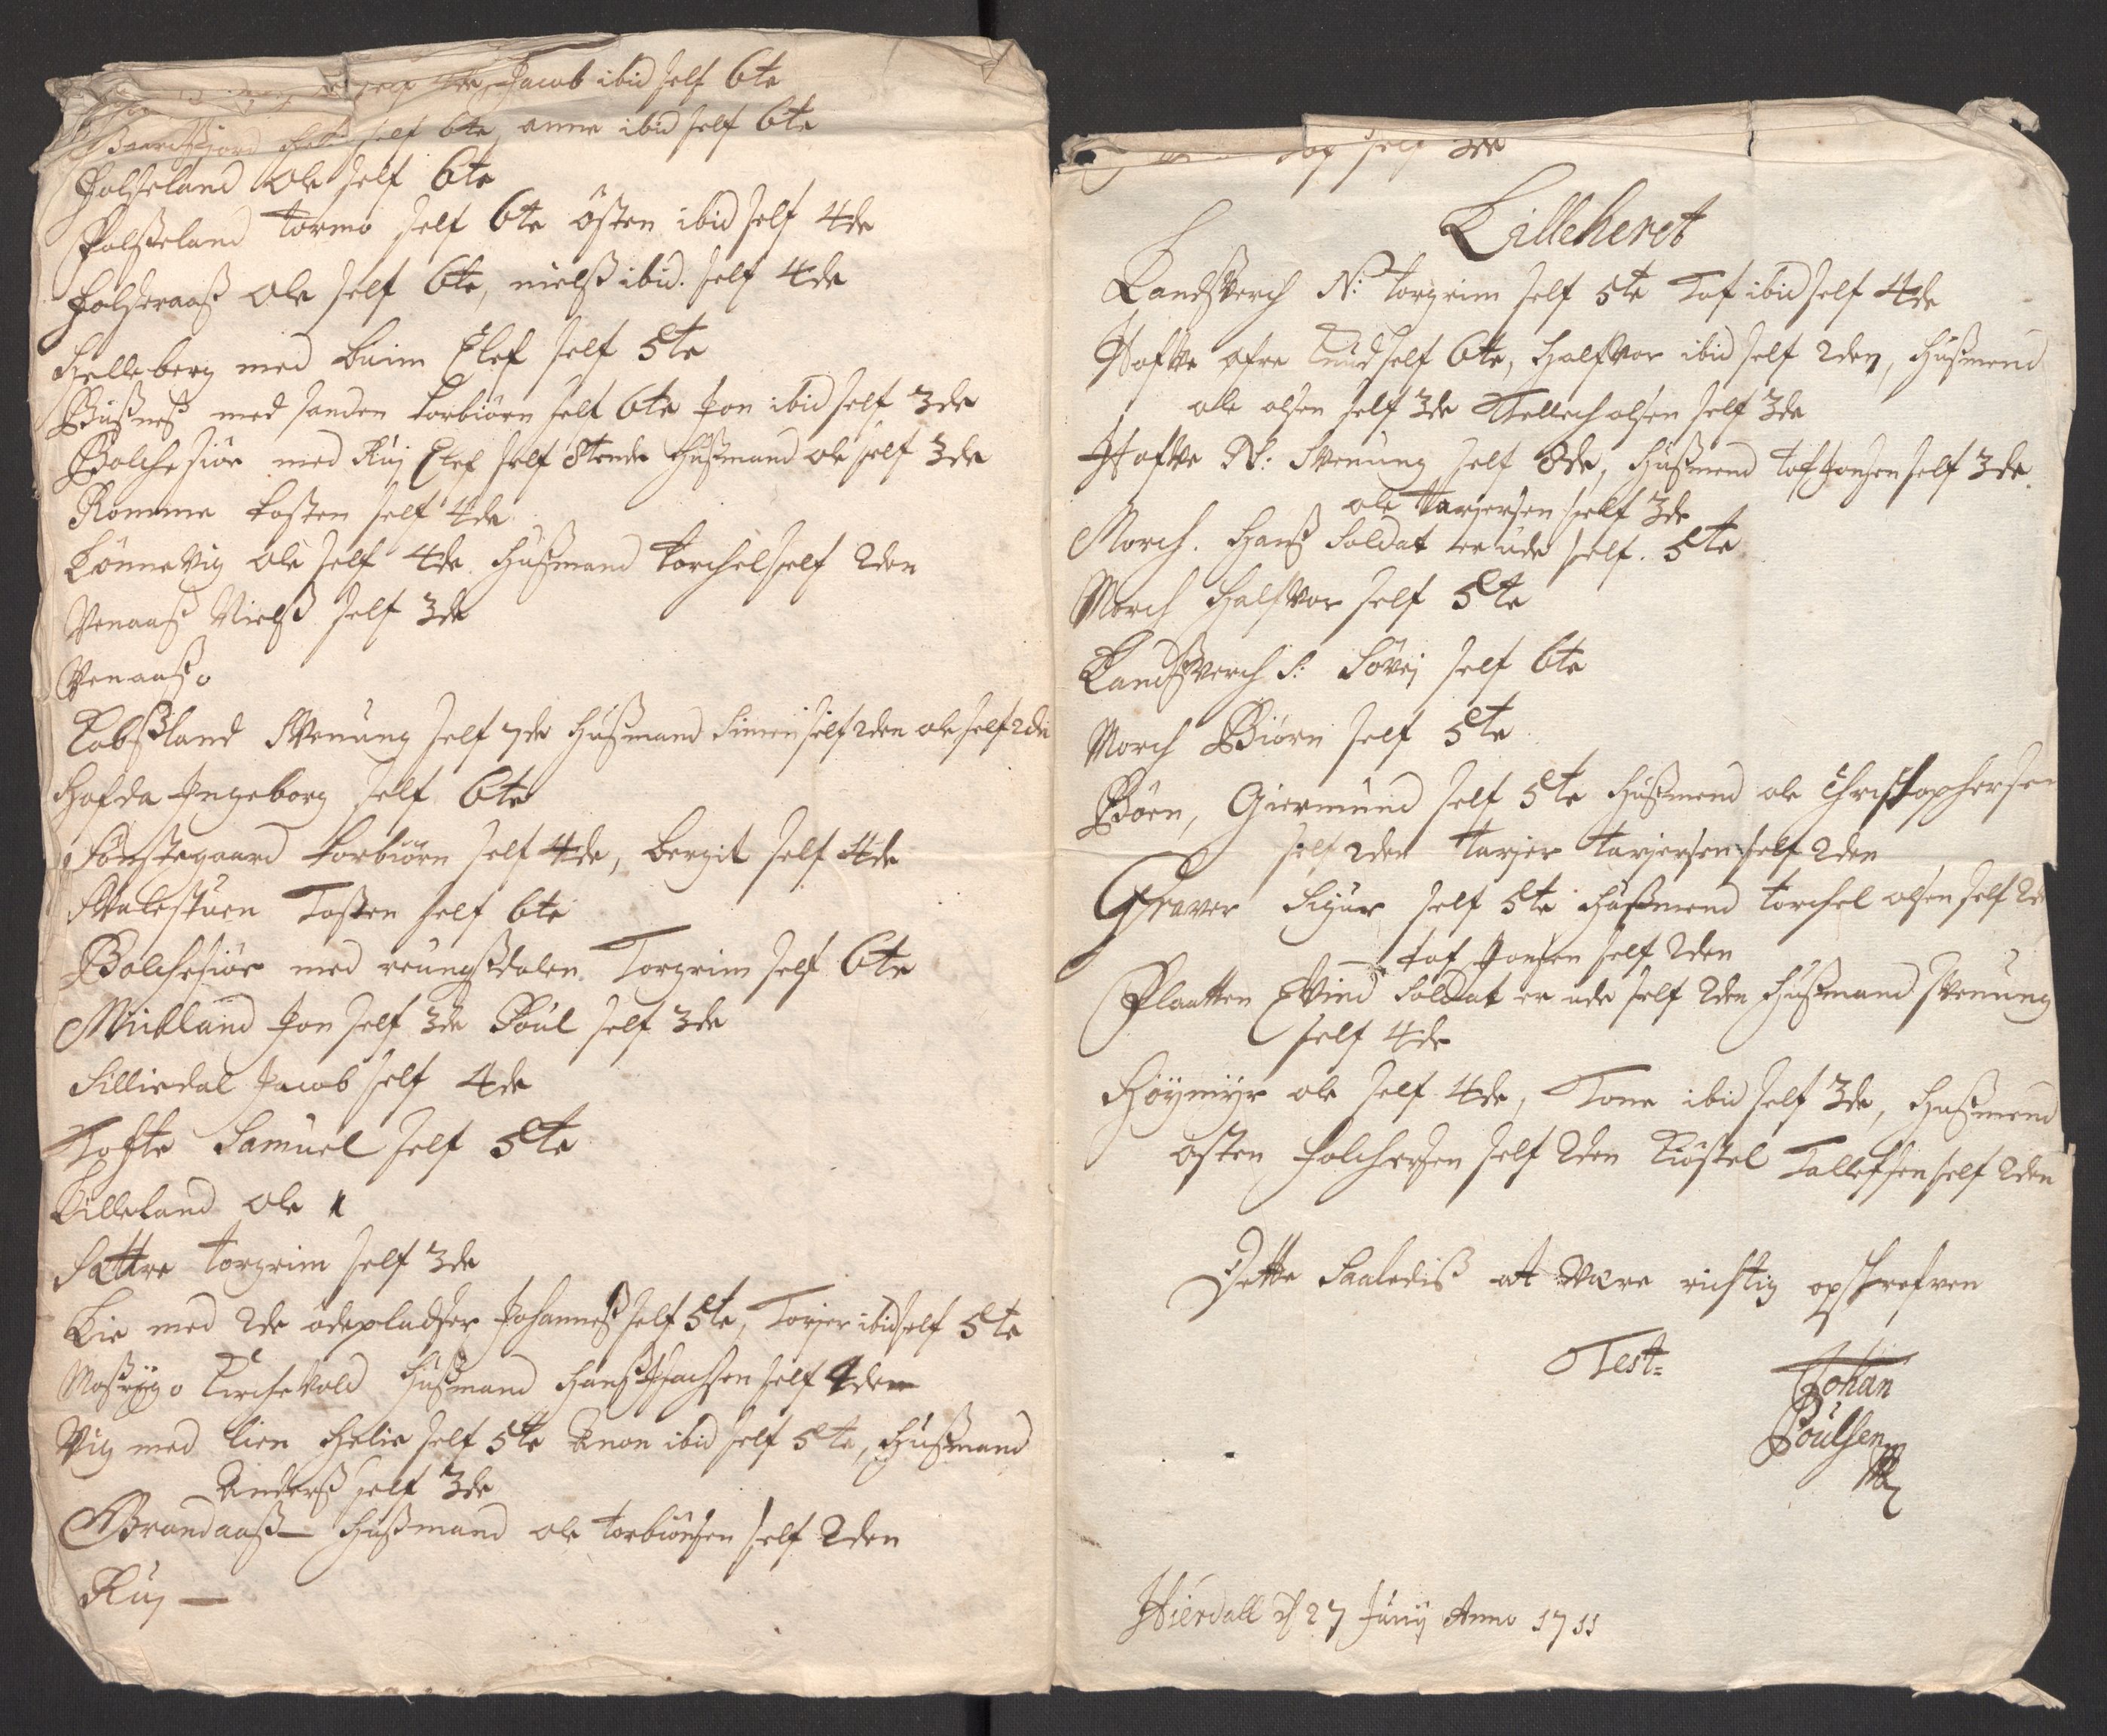 self 4de, Jacob ibid self 6te
self 6te, anne ibid self 6te
Folseland Ole self 6te
Folseland Tormo self 6te östen ibid self 4de
Folseraaß Ole self 6te, nielß ibid. self 4de
Helleberg med buim Elef self 5te
Bußneß med sanden torbiörn self 6te Jon ibid self 3de
Bolchesiöe med Ruj Elef self 8tende Hußmand ole self 3de
Romme tosten self 4de
Lönnevig ole self 4de. Hußmand torchel self 2den
Venaaß Nielß self 3de
Venaaß o
Kobßland Svenung self 7de Hußmand Simen self 2den ole self 2den
Hofda Ingeborg self 6te
Sönstegaard torbiörn self 4de, bergit self 4de
Svalestuen Tosten self 6te
Bolchesiöe med reungßdalen. Torgrim self 6te
Midland Jon self 3de Poul self 3de
Silliedal Jacob self 4de
Tofte Samuel self 5te
Lilleland ole 1
Sættre torgrim self 3de
Lie med 2de ödepladser Johanneß self 5te, Torjer ibid self 5te
Moßryg o Kirchevold Hußmand Hanß self 4de
Vig med lien Helie self 5te Anon ibid self 5te, Hußmand
Anderß self 3de
Brandaaß — Hußmand ole torbiönsen self 2den
Ruj —
self 3de
Lilleheret
Landßverch N: torgrim self 5te Tof ibid self 4de
Hofve öfre Knud self 6te, Halfvor ibid self 2den, Hußmend
olle olsen self 3de Kellech olsen self 3de
Hofve N: Svenung self 8de, Hußmend tof Jonsen self 3de.
ole tarjersen self 3de
Morch. Hanß Soldat er ude self. 5te
Morch Halfvor self 5te
Landßverch S: Sövej self 6te
Morch Biörn self 5te
Böen, Giermund self 5te Hußmend ole Christophersen
self 2den tarjer tarjersen self 2den
Graver Sigur self 5te Hußmend torchel olsen self 2de
tof Jonsen self 2den
Plaatten Evind Soldat er ude self 2den Hußmand Svenung
self 4de
Höymyr ole self 4de, Tone ibid self 3de, Hußmend
östen folchersen self 2den Kiöstel Tallefsen self 2den
Dette Saalediß at være richtig opskrefven
Test=
Johan
Poulsen
Hierdall d 27 Junij Anno 1711